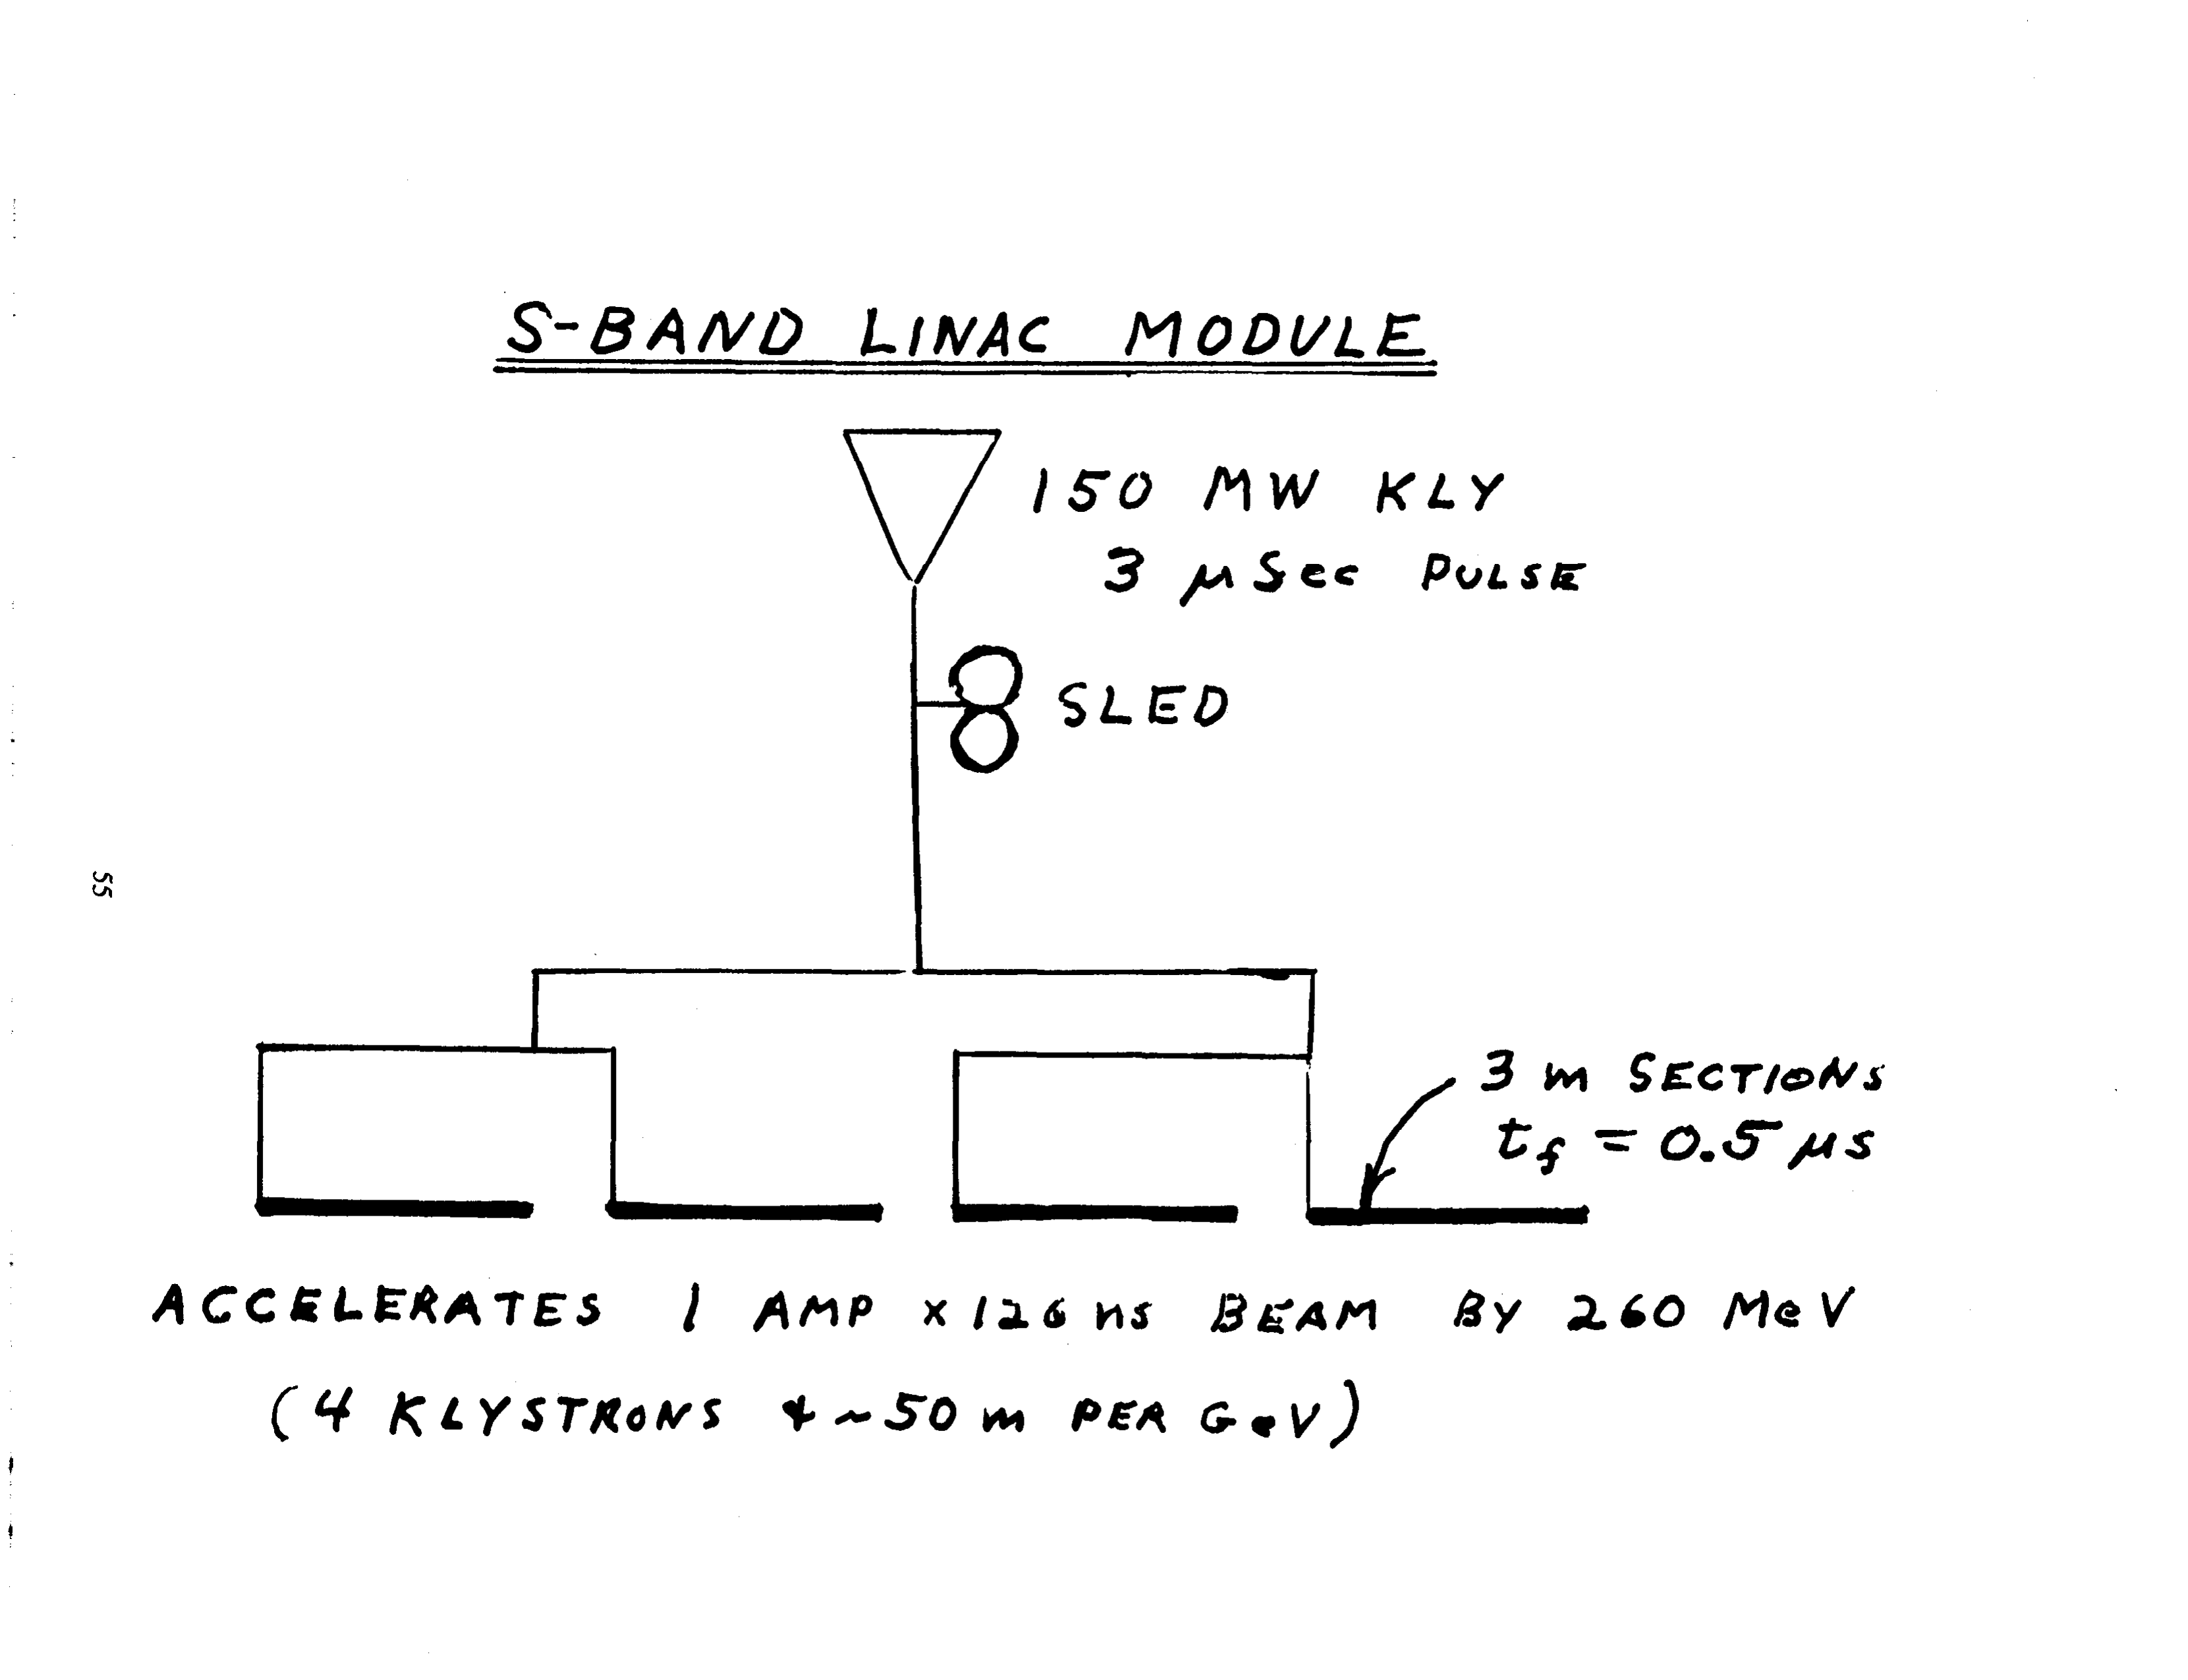 S-BAND LINAC MODULE
150 MW KLY
3 μSec PULSE
SLED
55
3 m SECTIONS
tf = 0.5 μs
ACCELERATES 1 AMP x 126 ns BEAM BY 260 MeV
(4 KLYSTRONS & ~50 m PER GeV)